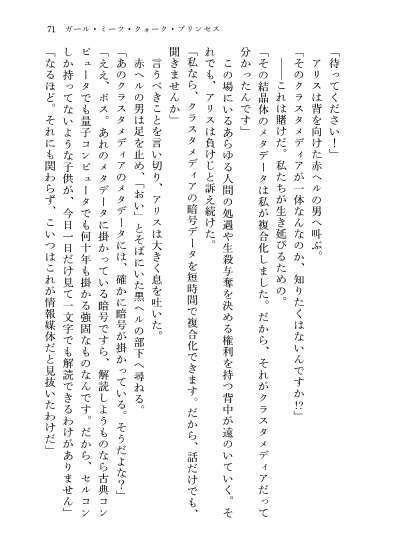 71 ガール・ミーツ・クォーク・プリンセス
「待ってください！」
アリスは背を向けた赤ヘルの男へ叫ぶ。
「そのクラスタメディアが一体なんなのか、知りたくはないんですか!?」
――これは賭けだ。私たちが生き延びるための。
「その結晶体のメタデータは私が複合化しました。だから、それがクラスタメディアだって
分かったんです」
この場にいるあらゆる人間の処遇や生殺与奪を決める権利を持つ背中が遠のいていく。そ
れでも、アリスは負けじと訴え続けた。
「私なら、クラスタメディアの暗号データを短時間で複合化できます。だから、話だけでも、
聞きませんか」
言うべきことを言い切り、アリスは大きく息を吐いた。
赤ヘルの男は足を止め、「おい」とそばにいた黒ヘルの部下へ尋ねる。
「あのクラスタメディアのメタデータには、確かに暗号が掛かっている。そうだよな？」
「ええ、ボス。あれのメタデータに掛かっている暗号ですら、解読しようものなら古典コン
ピュータでも量子コンピュータでも何十年も掛かる強固なものなんです。だから、セルコン
しか持ってないような子供が、今日一日だけ見て一文字でも解読できるわけがありません」
「なるほど。それにも関わらず、こいつはこれが情報媒体だと見抜いたわけだ」